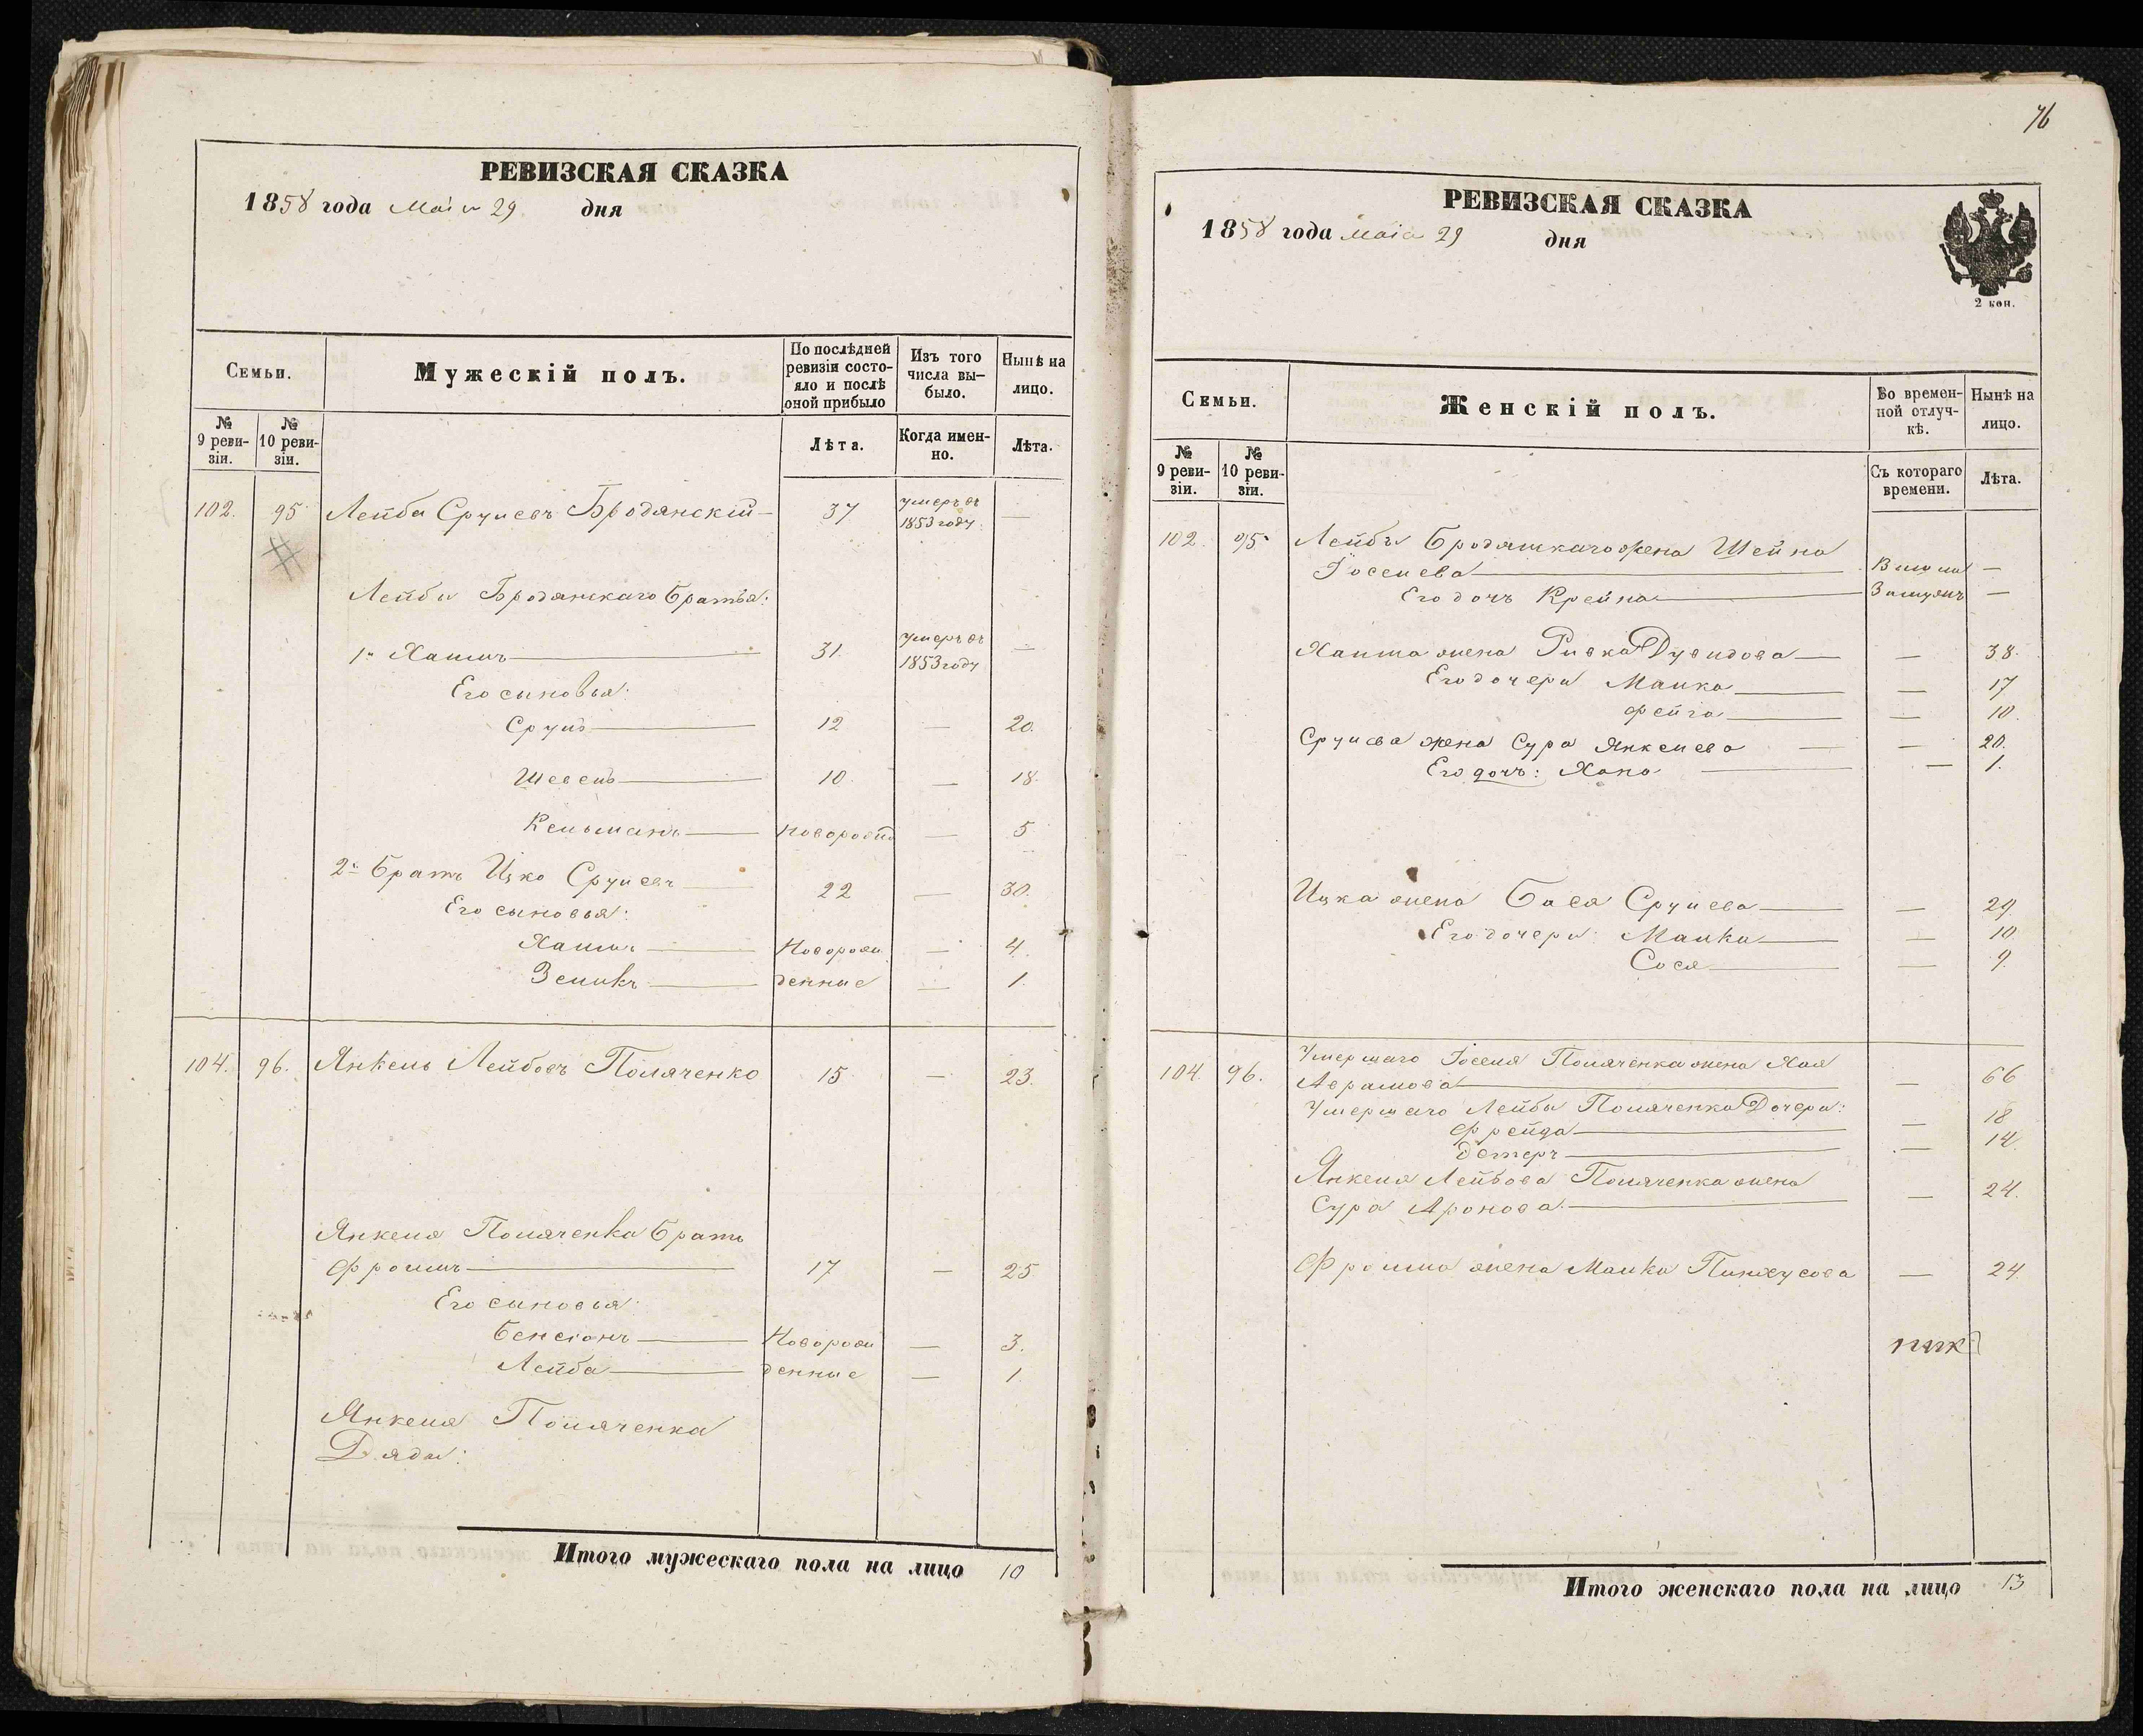 РЕВИЗСКАЯ СКАЗКА
1858 года Маiя 29 дня
Семьи.
Мужескiй полъ.
По послѣдней ревизiи состо-яло и послѣ оной прибыло
Изъ того числа вы-было.
Нынѣ на лицо.
№ 9 реви-зiи.
№ 10 реви-зiи.
Лѣта.
Когда имен-но.
Лѣта.
102. 95 Лейба Срулевъ Бродянскiй — 37 умеръ въ 1853 году —
Лейбы Бродянскаго братья:
1й Хаимъ — 31. умеръ въ 1853 году —
Его сыновья:
Сруль — 12 — 20.
Шевель — 10. — 18.
Кельманъ — новорожд — 5
2й братъ Ицко Срулевъ — 22 — 30.
Его сыновья:
Хаимъ — Новорож — 4.
Зеликъ — денные — 1.
104. 96. Янкель Лейбовъ Поляченко 15 — 23.
Янкеля Поляченка братъ
Фроимъ — 17 — 25
Его сыновья:
Бенсiонъ — Новорож — 3.
Лейба — денные — 1.
Янкеля Поляченка
Дяди:
Итого мужескаго пола на лицо 10
76
РЕВИЗСКАЯ СКАЗКА
1858 года Маiя 29 дня
2 коп.
Семьи.
Женскiй полъ.
Во времен-ной отлуч-кѣ.
Нынѣ на лицо.
№ 9 реви-зiи.
№ 10 реви-зiи.
Съ котораго времени.
Лѣта.
102. 95 Лейбы Бродянскаго жена Шейна
Iоселева — Вышла —
Его дочь Крейна — Замужъ —
Хаима жена Ривка Дувидова — — 38.
Его дочери Малка — — 17
Фейга — — 10.
Срулева жена Сура Янкелева — — 20.
Его дочь: Хана — — 1.
Ицка жена Бася Срулева — — 29.
Его дочери: Малка — — 10
Сося — — 9.
104. 96. Умершаго Iоселя Поляченка жена Хая
Аврамова — — 66
Умершаго Лейбы Поляченка Дочери:
Фрейда — — 18
Эстеръ — — 14
Янкеля Лейбова Поляченка жена
Сура Аронова. — — 24.
Фроима жена Малка Пинхусова — 24.
Итого женскаго пола на лицо 13